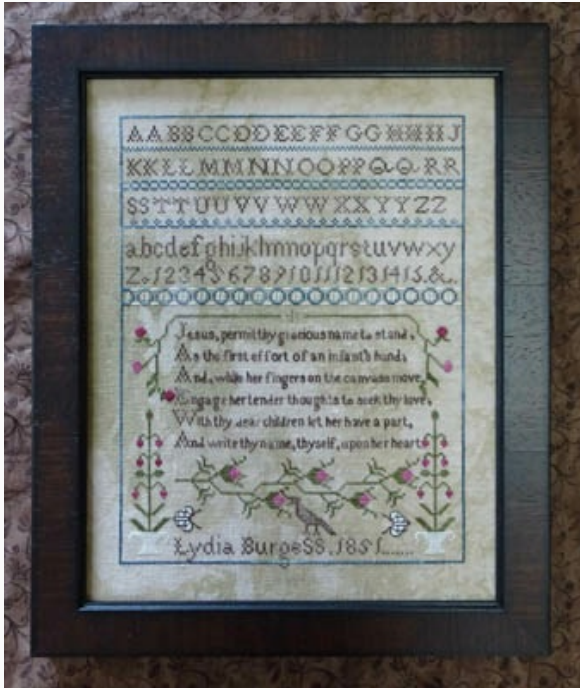 AABBCCDDEEFFGGHHIJ
KKLLMMNNOOPPQQRR
SSTTUUVVWWXXYYZZ
abcdefghijklmnopqrstuvwxy
Z. 1 2 3 4 5 6 7 8 9 10 11 12 13 14 15. &..
Jesus, permit thy gracious name to stand,
As the first effort of an infant's hand;
And, while her fingers on the canvass move,
Engage her tender thoughts to seek thy love,
With thy dear children let her have a part,
And write thy name, thyself, upon her heart.
Lydia BurgeSS. 1851......